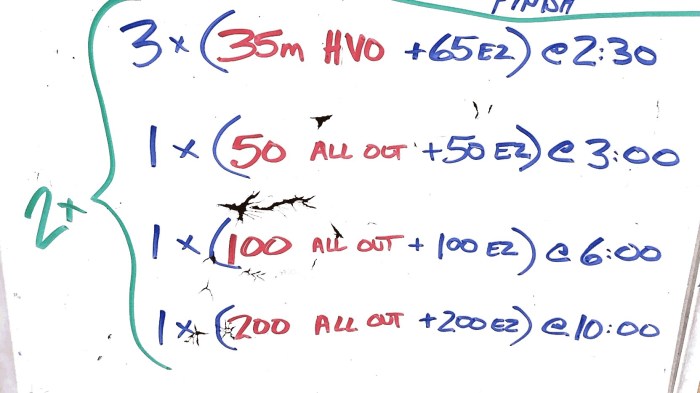 FINISH
3 x (35m HVO +65 EZ) @ 2:30
1 x (50 ALL OUT +50 EZ) @ 3:00
2x
1 x (100 ALL OUT + 100 EZ) @ 6:00
1 x (200 ALL OUT +200 EZ) @ 10:00